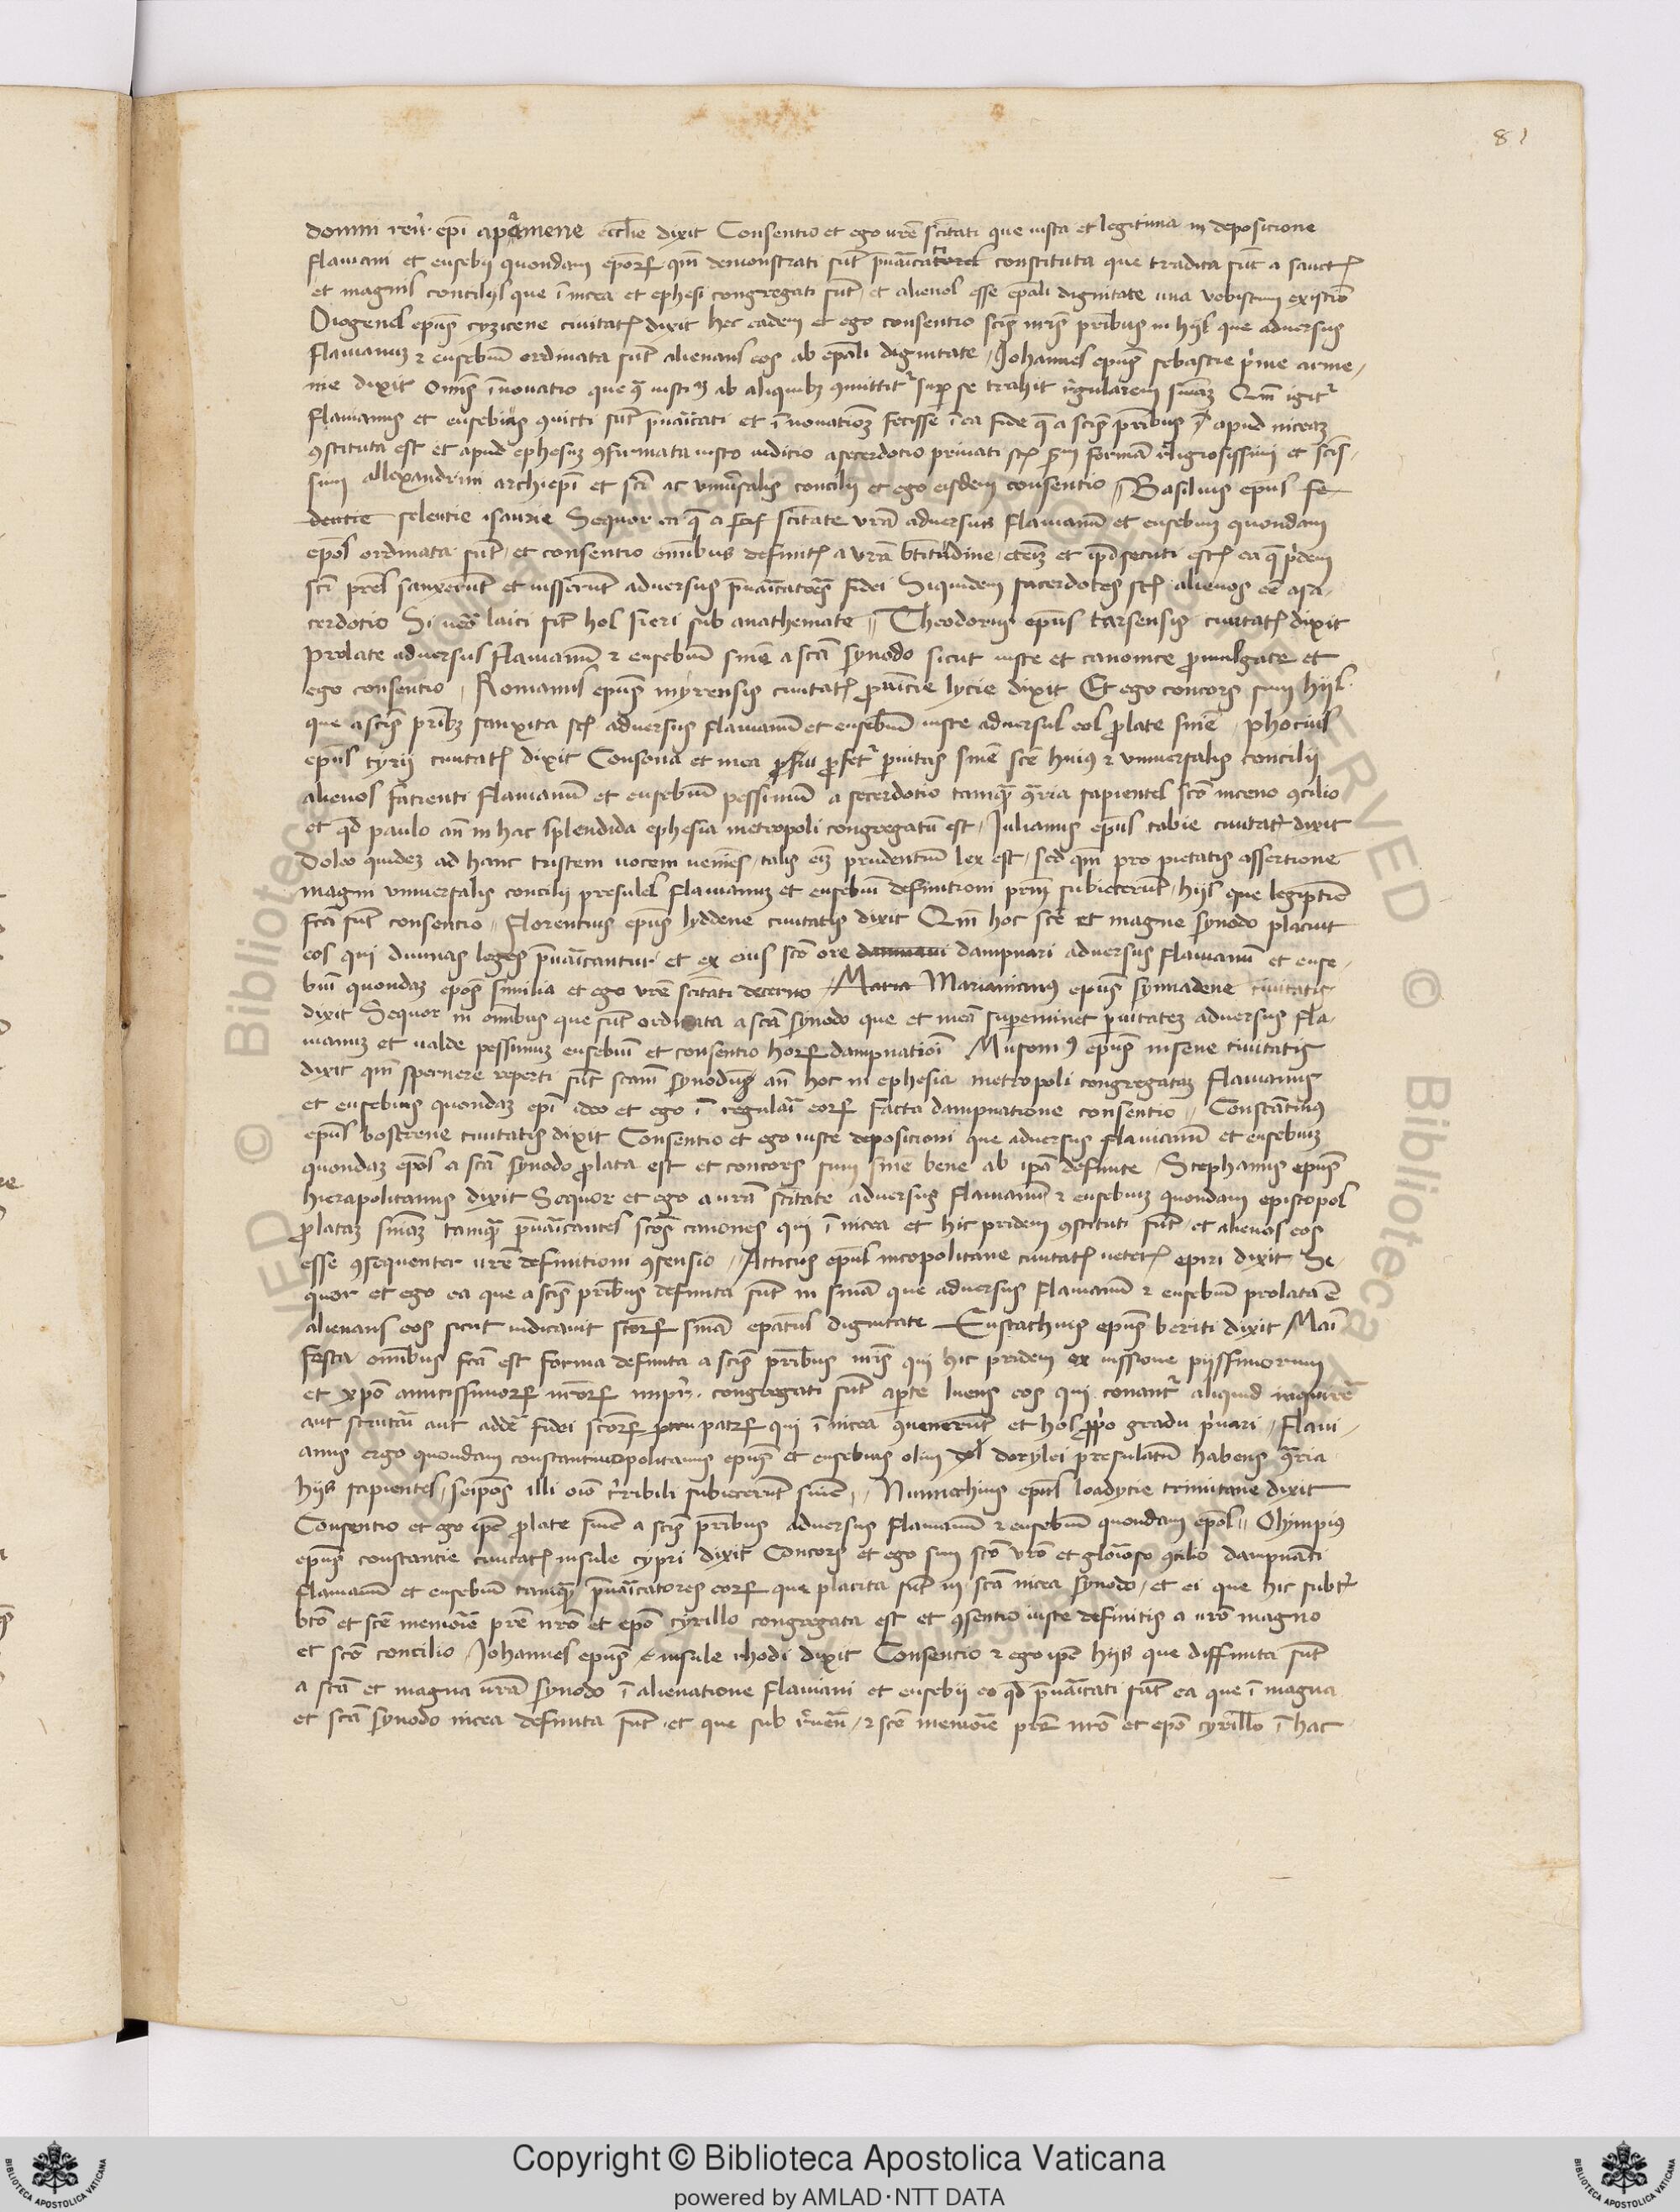 81
domni reũ. epĩ apamene ecclie dixit Consentio et ego vrẽ scĩtati que iusta et legitima in deposicione
flaviani et eusebii quondam eporꝝ qm̃ demonstrati sũt p̃uaĩcati constituta que tradita sũt a sanctis
et magnis conciliis que ĩ nicea et ephesi congregati sũt et alienos esse epãli dignitate una vobiscum existĩo
Diogenes epũs cyzicene civitatis dixit hec eadem et ego consentio scĩs nrĩs prĩbus in hiis que adversus
flavianuꝫ ⁊ eusebiũ ordinata sũt alienans eos ab epãli dignitate Johannes epũs sebastie p̃me arme
nie dixit Omĩs ĩnovatio que ab aliquibꝫ ꝯmittitur sup se trahit regularem sñiaꝫ Qm̃ igitur
flavianus et eusebius ꝯvicti sũt p̃uaĩcati et ĩnovationeꝫ fecisse ĩ ea fide q̃ a scĩs prĩbus apud niceaꝫ
ꝯstituta est et apud ephesuꝫ ꝯfirmata iusto iuditio a sacerdotio privati st̃ scđm formã religiosissimi et scĩs
simi allexandrini archiepĩ et scĩ ac universalis concilii et ego eisdem consentio Basilius epũs se
dentie selentie isaurie Sequor ea q̃ a scĩtate vrã adversus flavianũ et eusebiuꝫ quondam
epõs ordinata sũt et consentio omĩbus definitis a vrã btĩtudine eteniꝫ et ipĩ secuti estis ea q̃ pridem
scĩ prẽs sanxerunt et iusserunt adversus p̃uaĩcatores fidei Siquidem sacerdotes st̃ alienos eẽ a sa
cerdotio Si uero laici sũt hos fieri sub anathemate Theodorus epũs tarsensis civitatis dixit
Prolate adversus flavianũ ⁊ eusebiũ sñie a scã synodo sicut iuste et canonice promulgate et
ego consentio Romanus epũs myrensis civitatis provĩcie lycie dixit Et ego concors sum hiis
que a scĩs prĩbꝫ sanxita st̃ adversus flavianũ et eusebiũ iuste adversus eos prolate sñie Phocius
epũs tyrii civitatis dixit Consona et mea profertur parvitas sñie scẽ huius ⁊ universalis concilii
alienos facienti flavianũ et eusebiũ pessimum a sacerdotio tamquã ꝯtraria sapientes scõ niceno ꝯcilio
et qđ paulo añ in hac splendida ephesia metropoli congregatũ est Julianus epũs tabie civitatis dixit
Doleo quideꝫ ad hanc tristem vocem veniẽs talis eniꝫ prudentiũ lex est sed qm̃ pro pietatis assertione
magni universalis concilii presules flavianuꝫ et eusebiũ definitioni prĩꝫ subiecerũt hiis que legiptĩe
fcã sũt consentio Florentius epũs lyddene civitatis dixit Qm̃ hoc scẽ et magne synodo placuit
eos qui divinas leges p̃uaĩcantur et ex eius scõ ore dampnari adversus flavianũ et euse
biũ quondaꝫ epõs similia et ego vrẽ scĩtati decerno Marinianus epũs synnadene civitatis
dixit Sequor in omĩbus que sũt ordinata a scã synodo que et meã supeminet pvitateꝫ adversus fla
vianuꝫ et valde pessimuꝫ eusebiũ et consentio horꝝ dampnatioĩ Musonius epũs nisene civitatis
dixit qm̃ spernere reperti sũt scam synodum añ hoc in ephesia metropoli congregataꝫ flavianus
et eusebius quondaꝫ epĩ ideo et ego ĩ regulaĩ eorꝝ facta dampnatione consentio Constãtinus
epũs bostrene civitatis dixit Consentio et ego iuste deposicioni que adversus flavianũ et eusebiuꝫ
quondaꝫ epõs a scã synodo prolata est et concors sum sñie bene ab ipã definite Stephanus epũs
hierapolitanus dixit Sequor et ego a vrã scĩtate adversus flavianũ ⁊ eusebiuꝫ quondam episcopos
prolataꝫ sñiaꝫ tamquã p̃uaĩcantes scõs canones qui ĩ nicea et hic pridem ꝯstituti sũt et alienos eos
esse ꝯsequenter vrẽ definitioni ꝯsensio Atticus epũs nicopolitane civitatis veteris epiri dixit Se
quor et ego ea que a scĩs prĩbus definita sũt in sñiã que adversus flavianũ ⁊ eusebiũ prolata ẽ
alienans eos sicut iudicavit scorꝝ sñiã epãtus dignitate Eustachius epũs beriti dixit Maĩ
festa omĩbus fcã est forma definita a scĩs prĩbus nrĩs qui hic pridem ex iussione piissimorum
et xp̃o amicissimorꝝ nrõrꝝ imp̃r. congregati sũt apte luens eos qui conantur aliquid inquirere
aut scrutari aut addẽ fidei scõrꝝ patrꝝ qui ĩ nicea ꝯvenerũt et hos propo gradu p̃vari Flavi
anus ergo quondam constantinopolitanus epũs et eusebius olim dorylei presulatum habens ꝯtraria
hiis sapientes seipõs illi oĩo t̃ribili subiecerũt sñie Nunnechius epũs loadycie trimitane dixit
Consentio et ego ipẽ prolate sñie a scĩs prĩbus adversus flavianũ ⁊ eusebiũ quondam epõs Olympius
epũs constantie civitatis insule cypri dixit Concors et ego sum scõ vrõ et gloĩoso ꝯcilio dampnãti
flavianũ et eusebiũ tamquã p̃uaĩcatores eorꝝ que placita sũt in scã nicea synodo et ei que hic sub
btõ et scẽ memoĩe prẽ nrõ et epõ cyrillo congregata est et ꝯsentio iuste definitis a vrõ magno
et scõ concilio Johannes epũs insule rhodi dixit Consentio ⁊ ego ipẽ hiis que diffinita sũt
a scã et magna vrã synodo ĩ alienatione flaviani et eusebii eo qđ p̃uaĩcati sũt ea que ĩ magna
et scã synodo nicea definita sũt et que sub reũeñ ⁊ scẽ memoĩe prẽ nrõ et epõ cyrillo ĩ hac
Copyright © Biblioteca Apostolica Vaticana
powered by AMLAD·NTT DATA